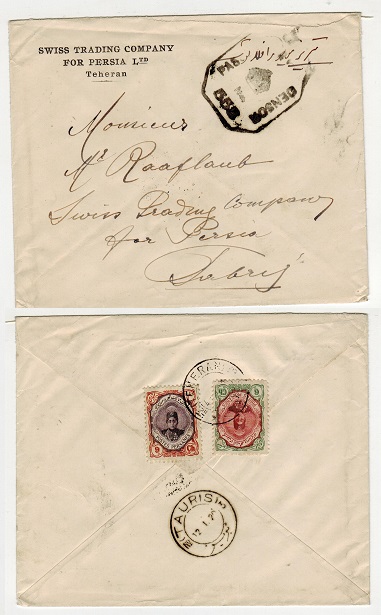 SWISS TRADING COMPANY
FOR PERSIA LTD
Teheran
PASSED
CENSOR
Monsieur
Mr Raaflaub
Swiss Trading Company
for Persia
Tabriz
TEHERAN
TAURIS